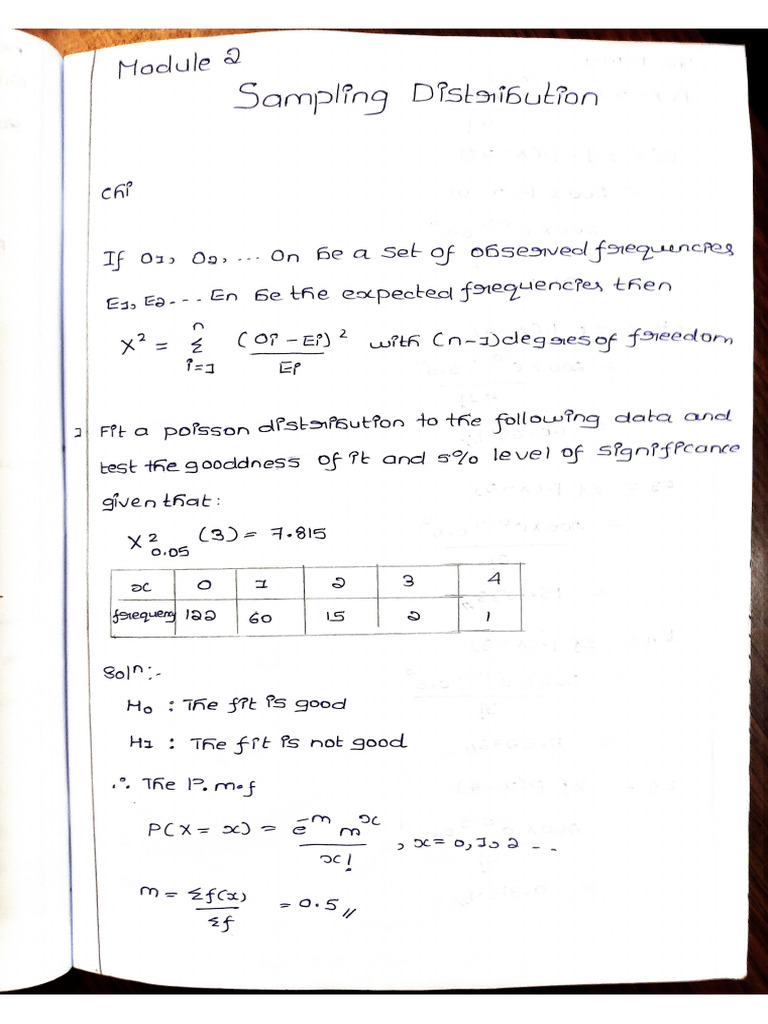 Module 2
Sampling Distribution
Chi
If O1, O2, ... On be a set of observed frequencies
E1, E2 ... En be the expected frequencies then
X² = n Σ i=1 (Oi - Ei)² / Ei with (n-1) degrees of freedom
1 Fit a poisson distribution to the following data and
test the gooddness of it and 5% level of significance
given that:
X²0.05 (3) = 7.815
x 0 1 2 3 4
frequency 122 60 15 2 1
Soln:-
H0 : The fit is good
H1 : The fit is not good
∴ The P.m.f
P(X = x) = e^-m m^x / x! , x = 0, 1, 2 - -
m = Σf(x) / Σf = 0.5 //